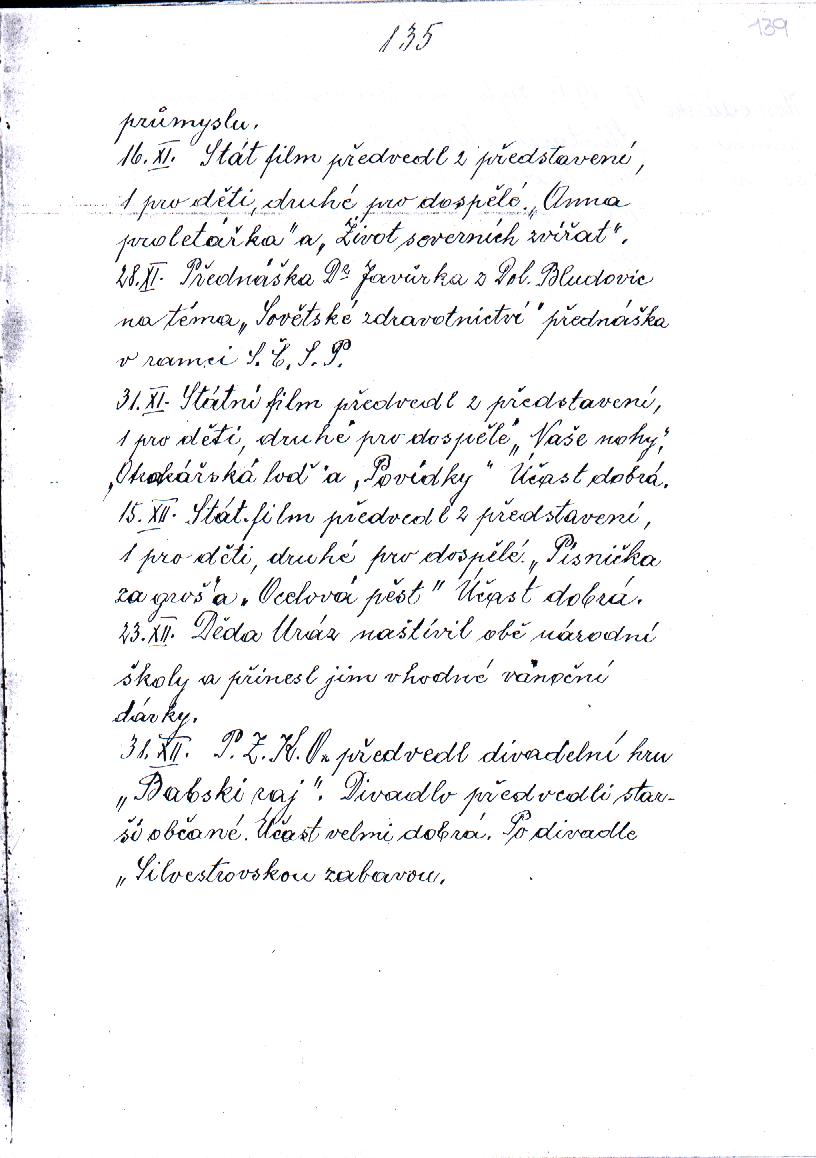 135
139
průmyslu.
16. XI. Stát film předvedl 2 představení,
1 pro děti, druhé pro dospělé. „Anna
proletářka" a „Život severních zvířat".
28. XI. Přednáška Dr Javůrka z Dol. Bludovic
na téma „Sovětské zdravotnictví" přednáška
v ramci S. Č. S. P.
31. XI. Státní film předvedl 2 představení,
1 pro děti, druhé pro dospělé „Vaše nohy",
lodˇ" a „Povídky" Účast dobrá.
15. XII. Stát. film předvedl 2 představení,
1 pro děti, druhé pro dospělé. „Písnička
za groš" a „Ocelová pěst" Účast dobrá.
23. XII. Děda Uráz naštívil obě národní
školy a přinesl jim vhodné vánoční
dárky.
31. XII. P. Z. K. O. předvedl divadelní hru
„Babski raj". Divadlo předvedli star-
ší občané. Účast velmi dobrá. Po divadle
„Silvestrovskou zabavou.